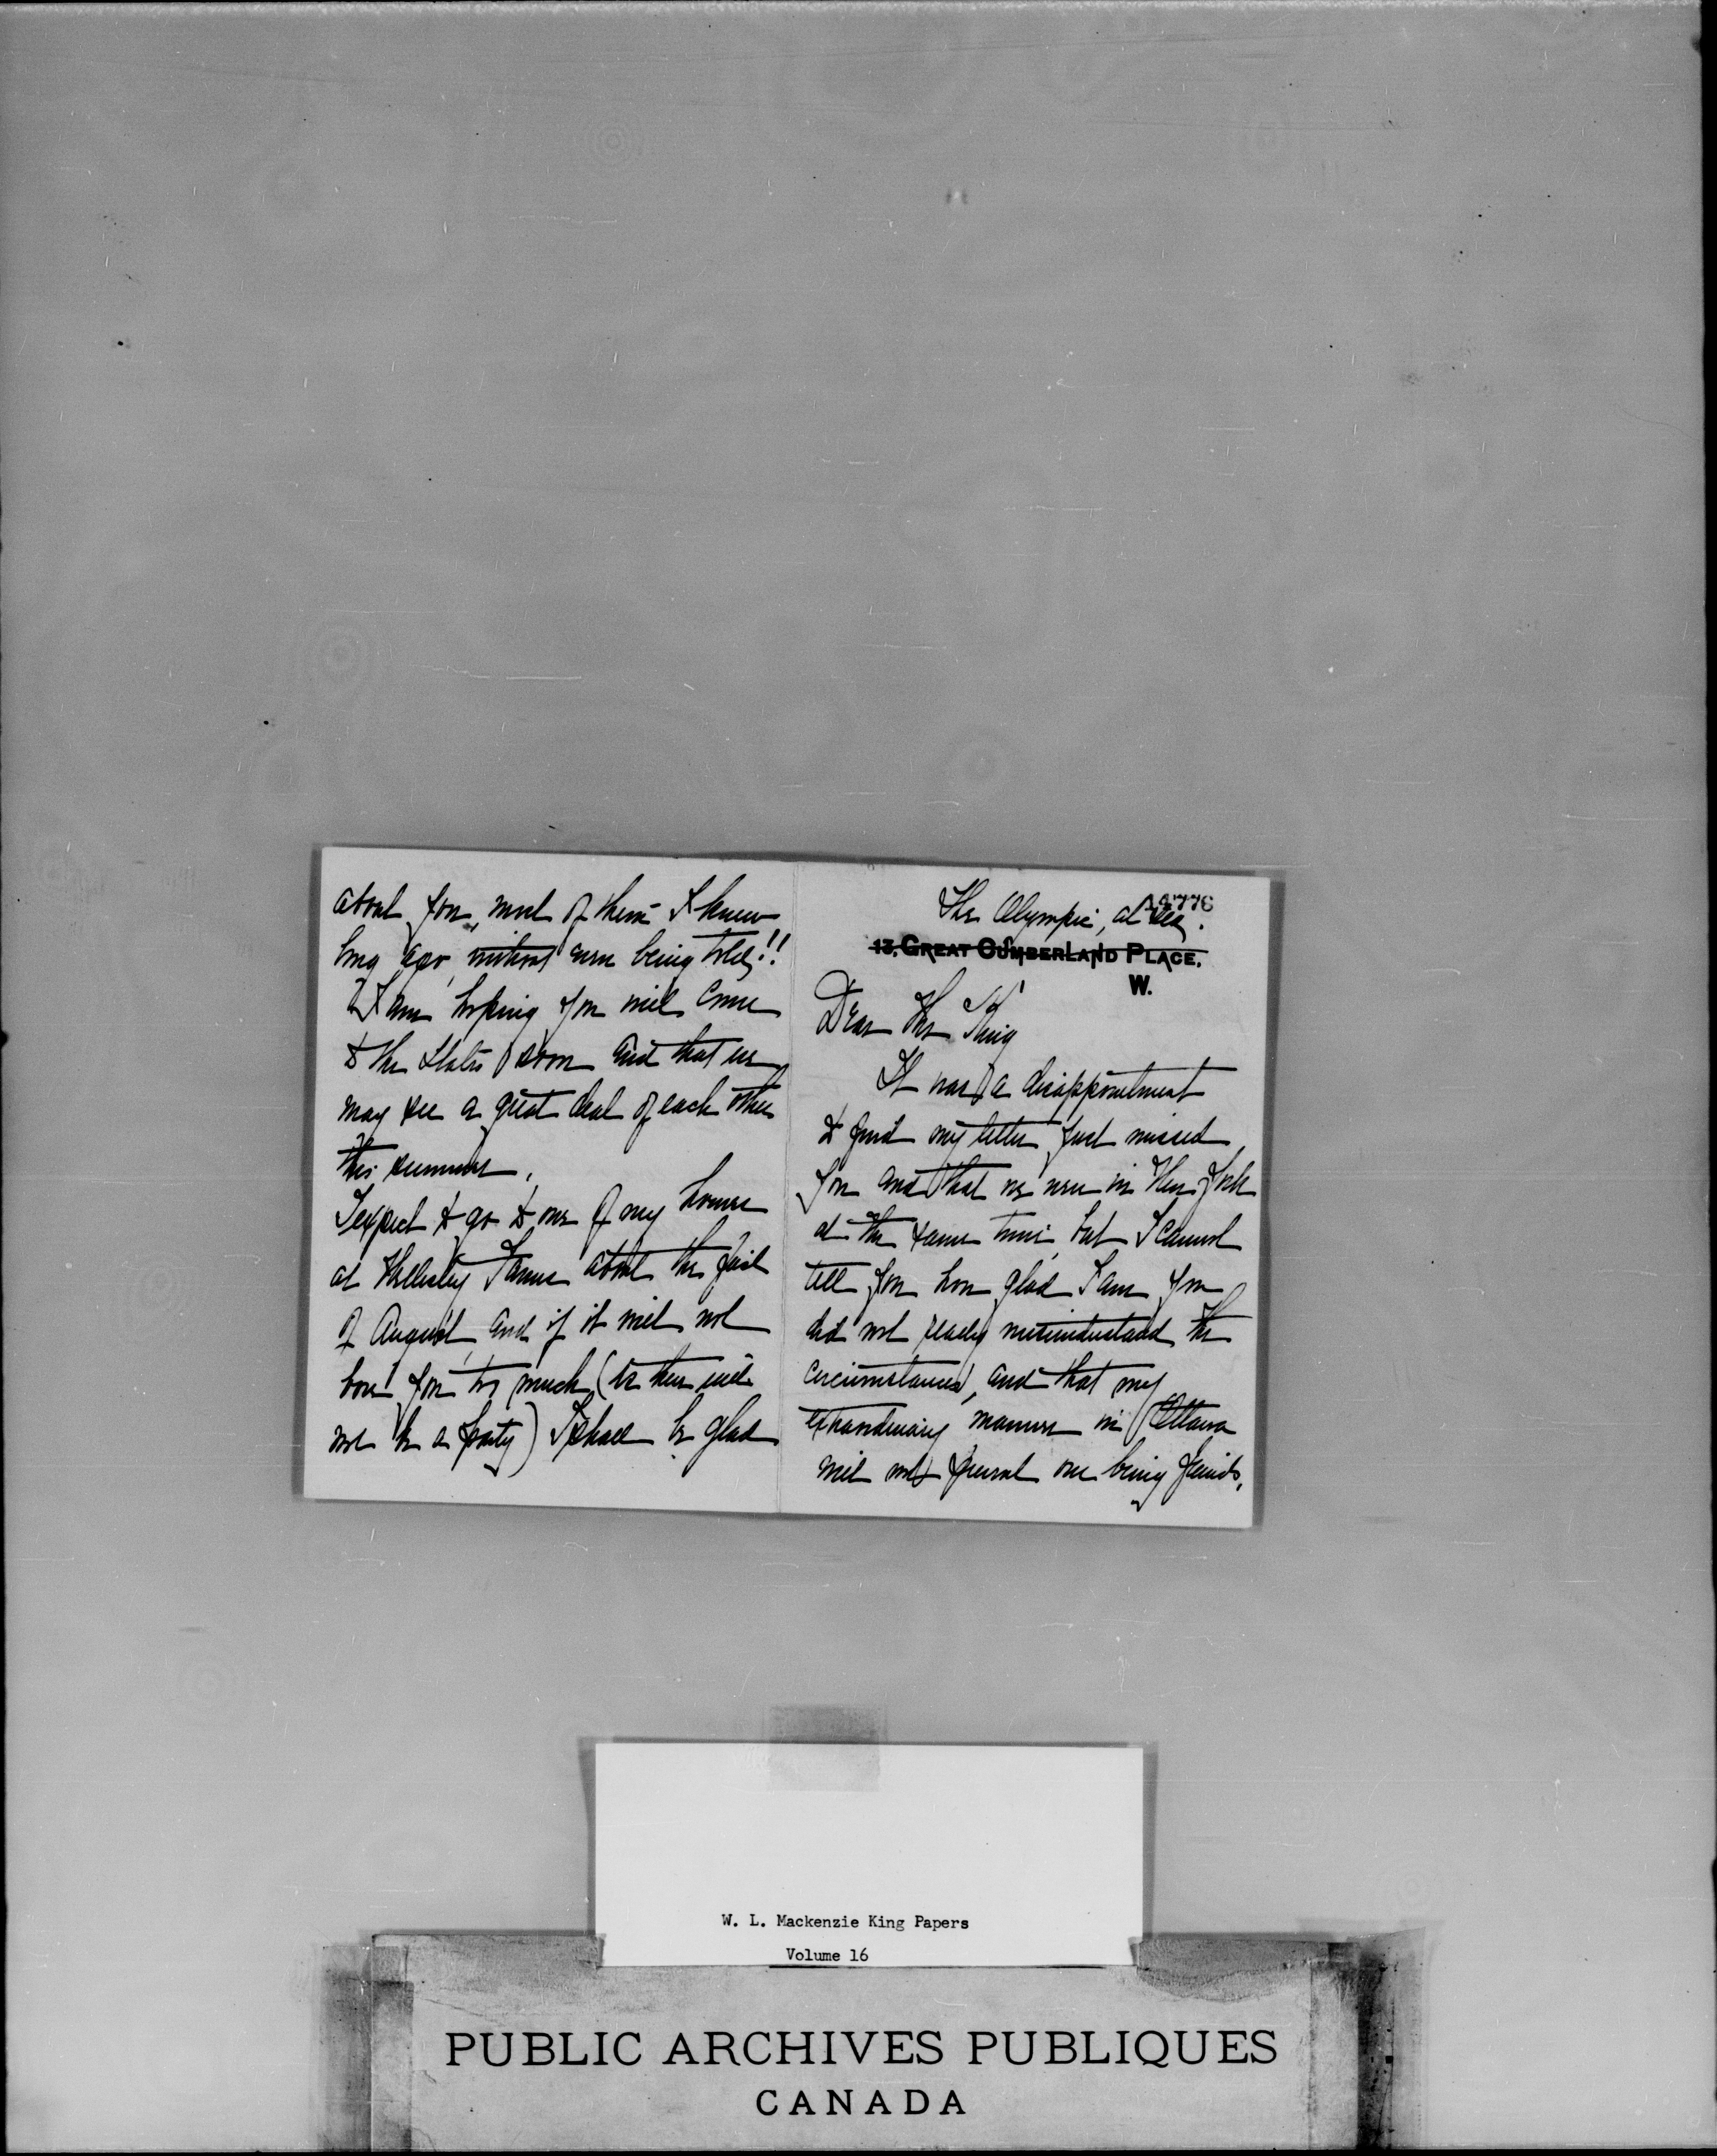 The Olympic, at sea.
13, GREAT CUMBERLAND PLACE,
W.
Dear Mr King
It was a disappointment
to find my letter just missed
you and that we were in New York
at the same time, but I cannot
tell you how glad I am you
did not really misunderstand the
circumstances, and that my
extraordinary manners in Ottawa
will not prevent our being friends.
about you, most of them I knew
long ago, without even being told!!
I am hoping you will come
to the States soon and that we
may see a great deal of each other
this summer.
I expect to go to one of my houses
at Farms about the first
of August, and if it will not
bore you too much (as there will
not be a party) I shall be glad
W. L. Mackenzie King Papers
Volume 16
PUBLIC ARCHIVES PUBLIQUES
CANADA